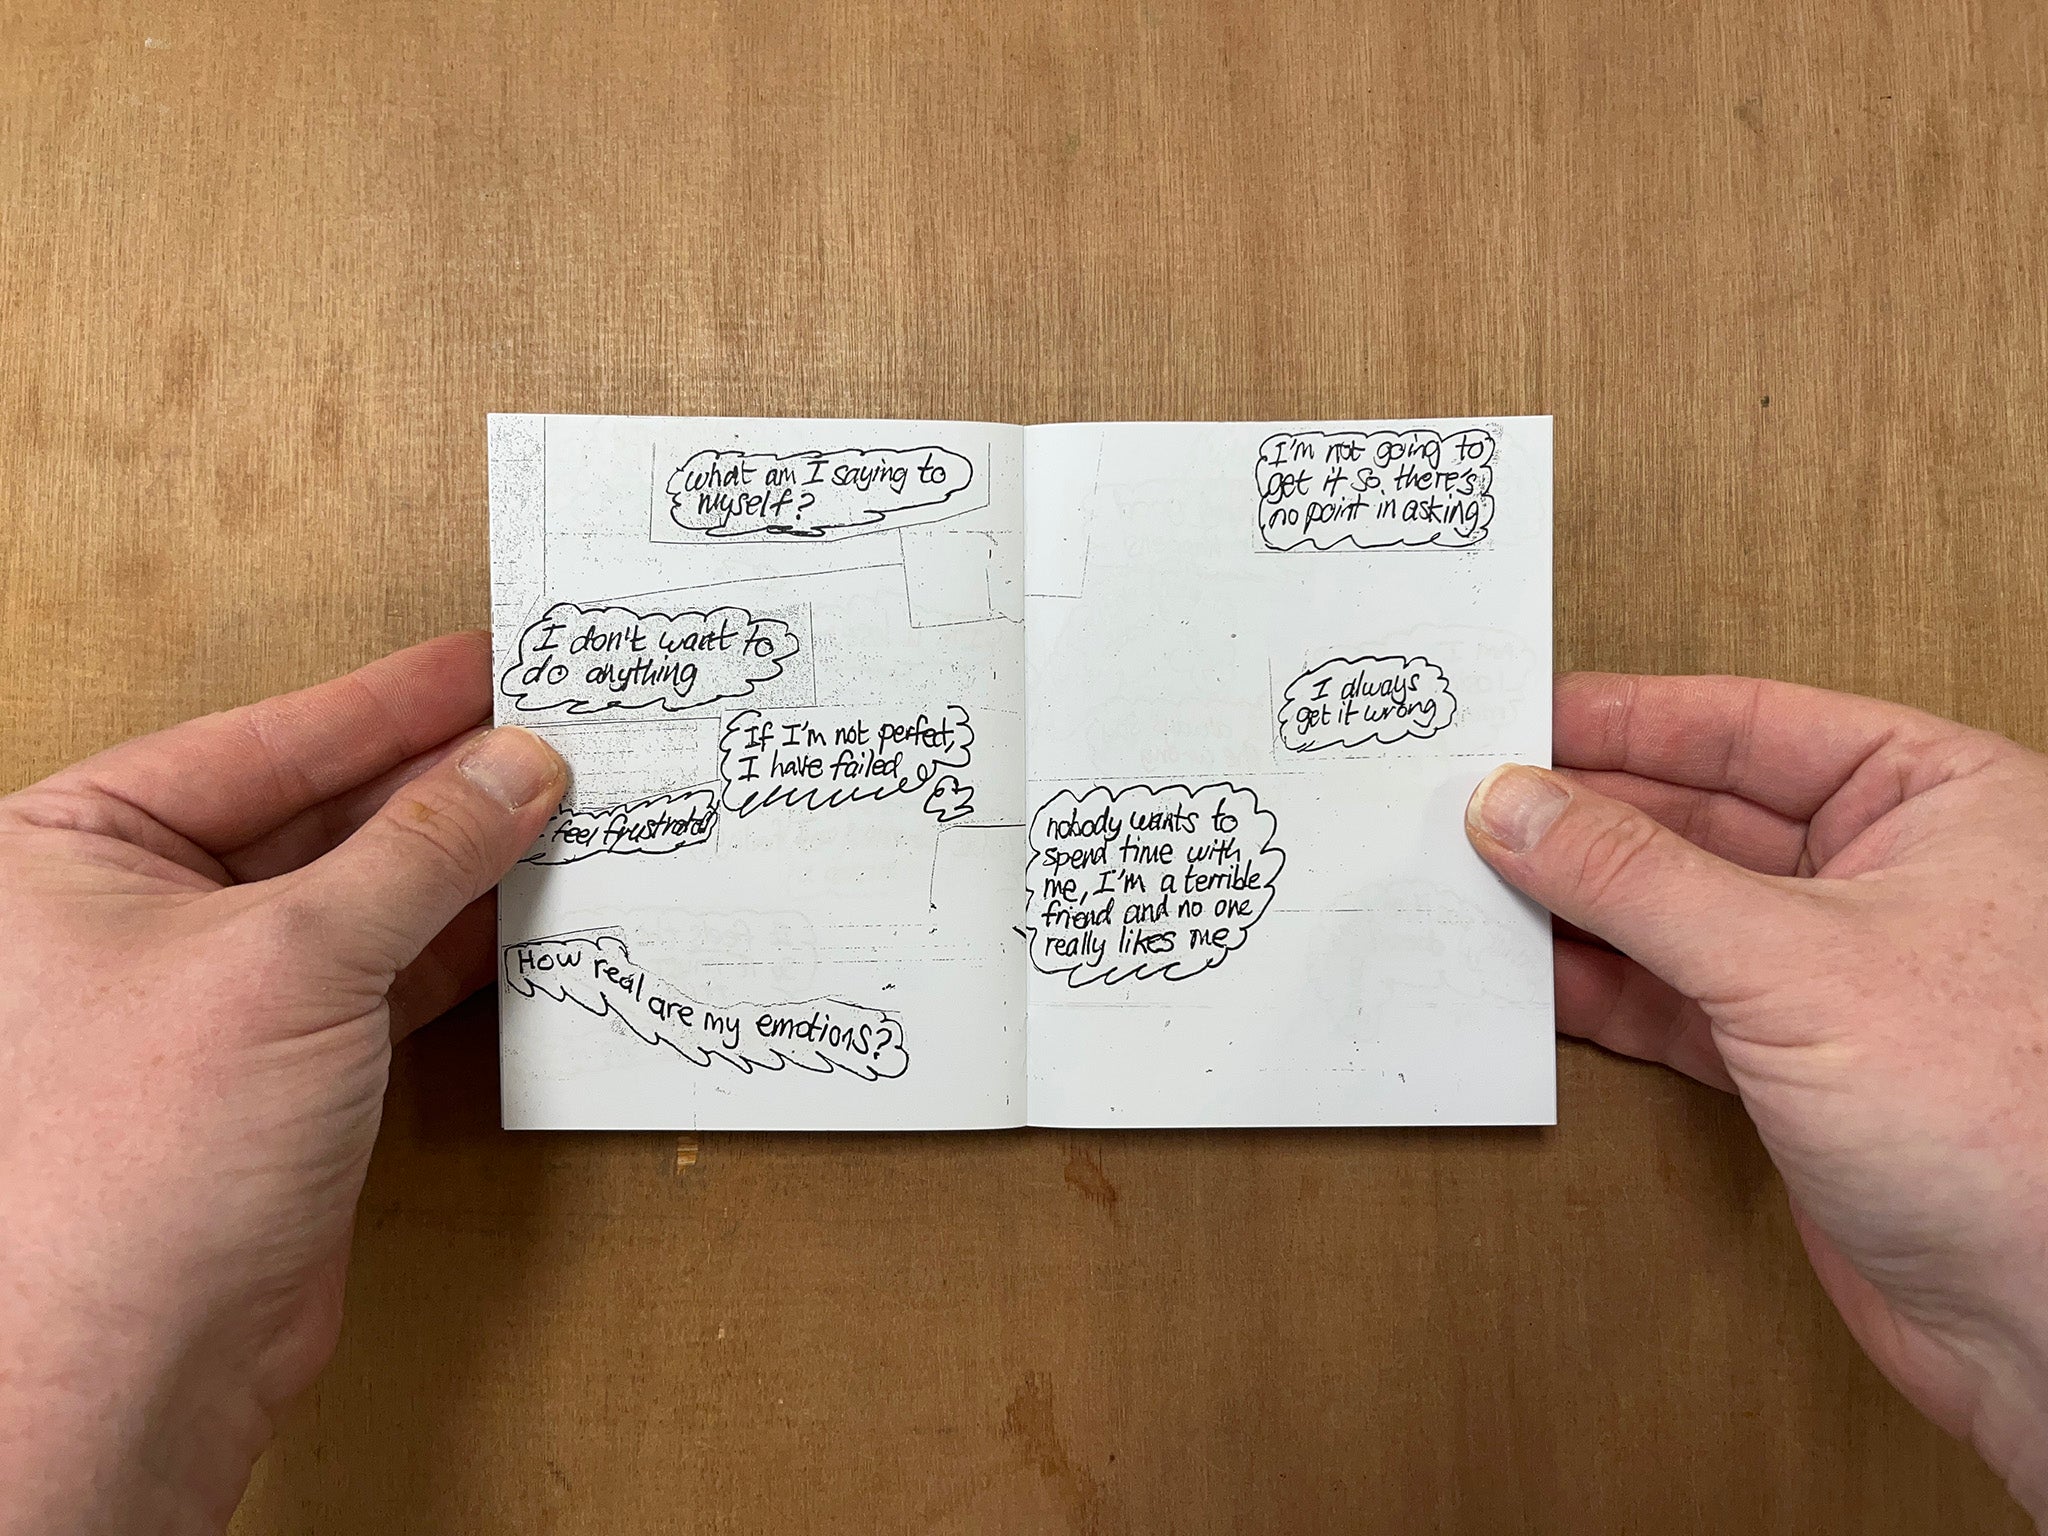 what am I saying to
myself?
I don't want to
do anything
If I'm not perfect,
I have failed
feel frustrated
How real are my emotions?
I'm not going to
get it so there's
no point in asking
I always
get it wrong
nobody wants to
spend time with
me, I'm a terrible
friend and no one
really likes me